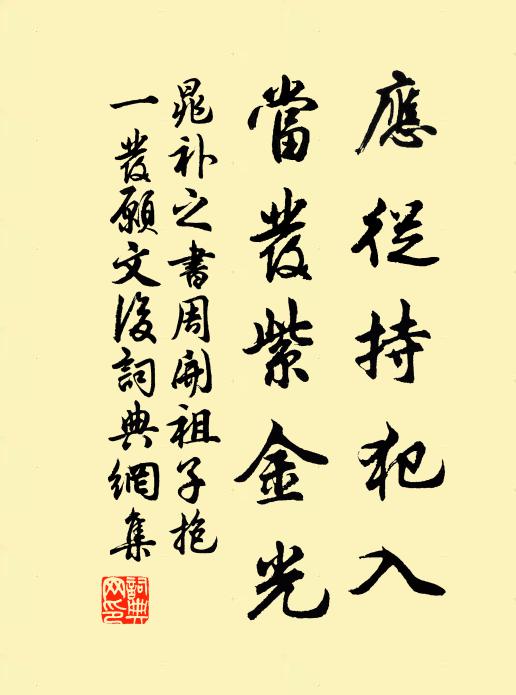 應從持犯入
當發紫金光
晁補之書周開祖子抱
一發願文後詞典網集
詞典網印